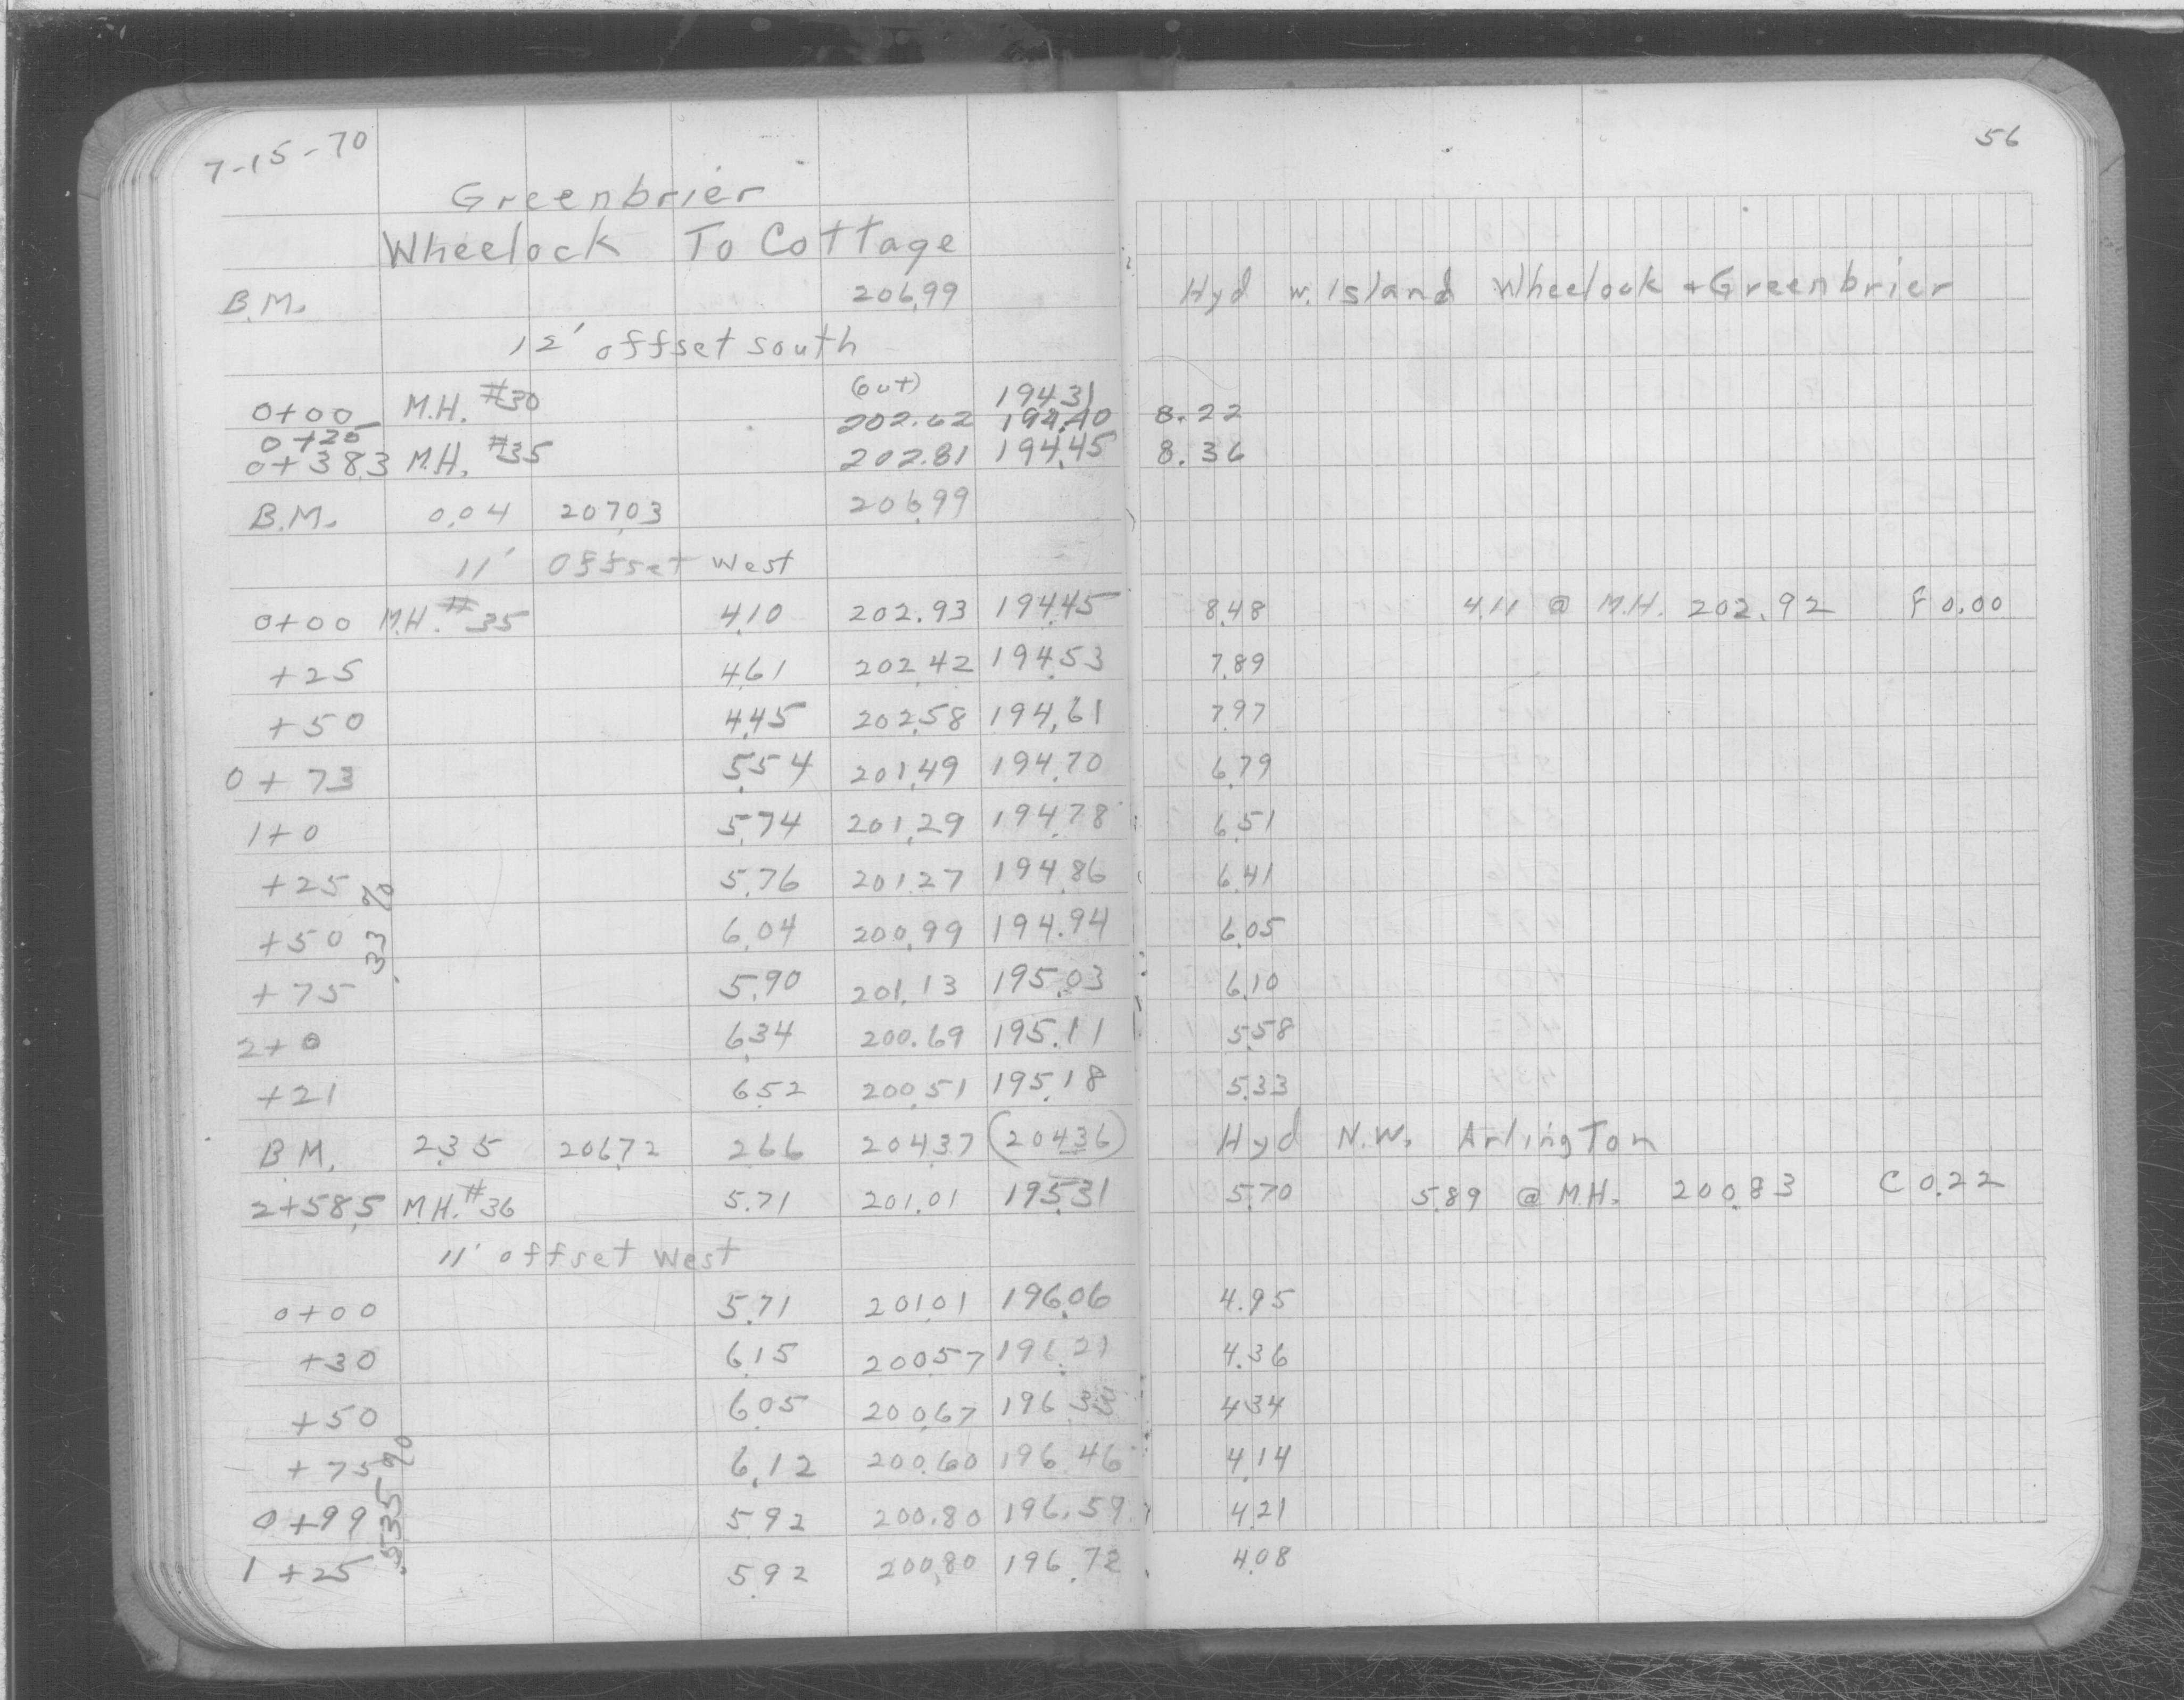 7-15-70
56
Greenbrier
Wheelock To Cottage
B.M. 206.99 Hyd w. Island Wheelock + Greenbrier
12' offset south
(out) 194.31
0+00 M.H. #30 202.62 194.40 8.22
0+25
0+38.3 M.H. #35 202.81 194.45 8.36
B.M. 0.04 207.03 206.99
11' Offset West
0+00 M.H. #35 4.10 202.93 194.45 8.48 4.11 @ M.H. 202.92 F 0.00
+25 4.61 202.42 194.53 7.89
+50 4.45 202.58 194.61 7.97
0+73 5.54 201.49 194.70 6.79
1+0 5.74 201.29 194.78 6.51
+25 5.76 201.27 194.86 6.41
+50 6.04 200.99 194.94 6.05
.33 %
+75 5.90 201.13 195.03 6.10
2+0 6.34 200.69 195.11 5.58
+21 6.52 200.51 195.18 5.33
B.M. 2.35 206.72 2.66 204.37 (204.36) Hyd N.W. Arlington
2+58.5 M.H. #36 5.71 201.01 195.31 5.70 5.89 @ M.H. 200.83 C 0.22
11' offset West
0+00 5.71 201.01 196.06 4.95
+30 6.15 200.57 196.21 4.36
+50 6.05 200.67 196.33 4.34
+75 6.12 200.60 196.46 4.14
.535 %
0+99 5.92 200.80 196.59 4.21
1+25 5.92 200.80 196.72 4.08